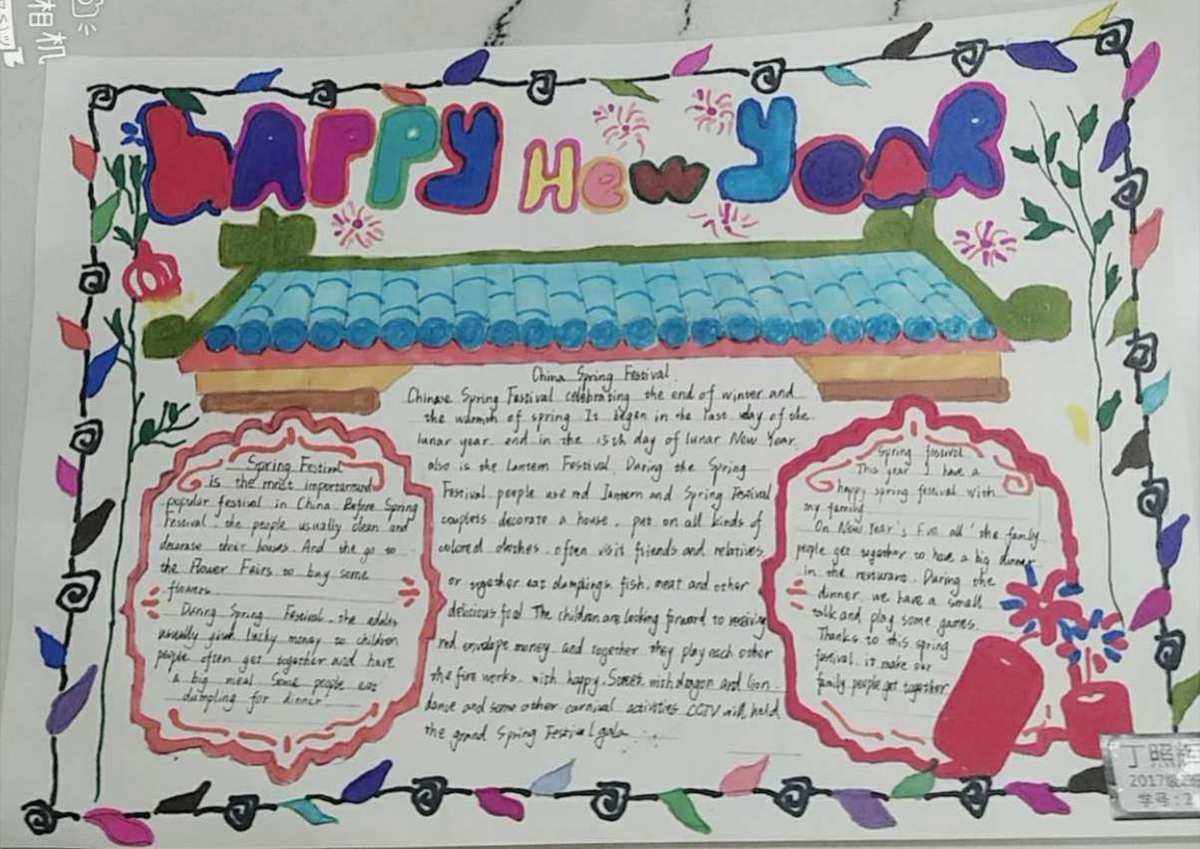 相机
HAPPY New YeAR
China Spring Festival
Chinese Spring Festival celebrating the end of winter and
the warmth of spring It began in the last day of the
lunar year end in the 15th day of lunar New Year
also is the Lantern Festival. During the Spring
Festival people use red lantern and Spring Festival
couplets decorate a house, put on all kinds of
colored clothes, often visit friends and relatives
or together eat dumplings, fish, meat and other
delicious food The children are looking forward to receiving
red envelope money and together they play each other
the fire works, with happy. Street with dragon and lion
dance and some other carnival activities CCTV will held
the grand Spring Festival gala
Spring Festival
is the most
popular festival in China. Before Spring
Festival, the people usually clean and
their houses. And the go to
the Flower Fairs to buy some
During Spring Festival, the adults
usually give lucky money to children
people often get together and have
a big meal Some people eat
dumpling for dinner
Spring festival
This year I have a
happy spring festival with
my family
On New Year's Eve all the family
people get together to have a big dinner
in the During the
dinner, we have a small
talk and play some games.
Thanks to this spring
festival, it make our
family people get together
丁照
2017级
学号：2